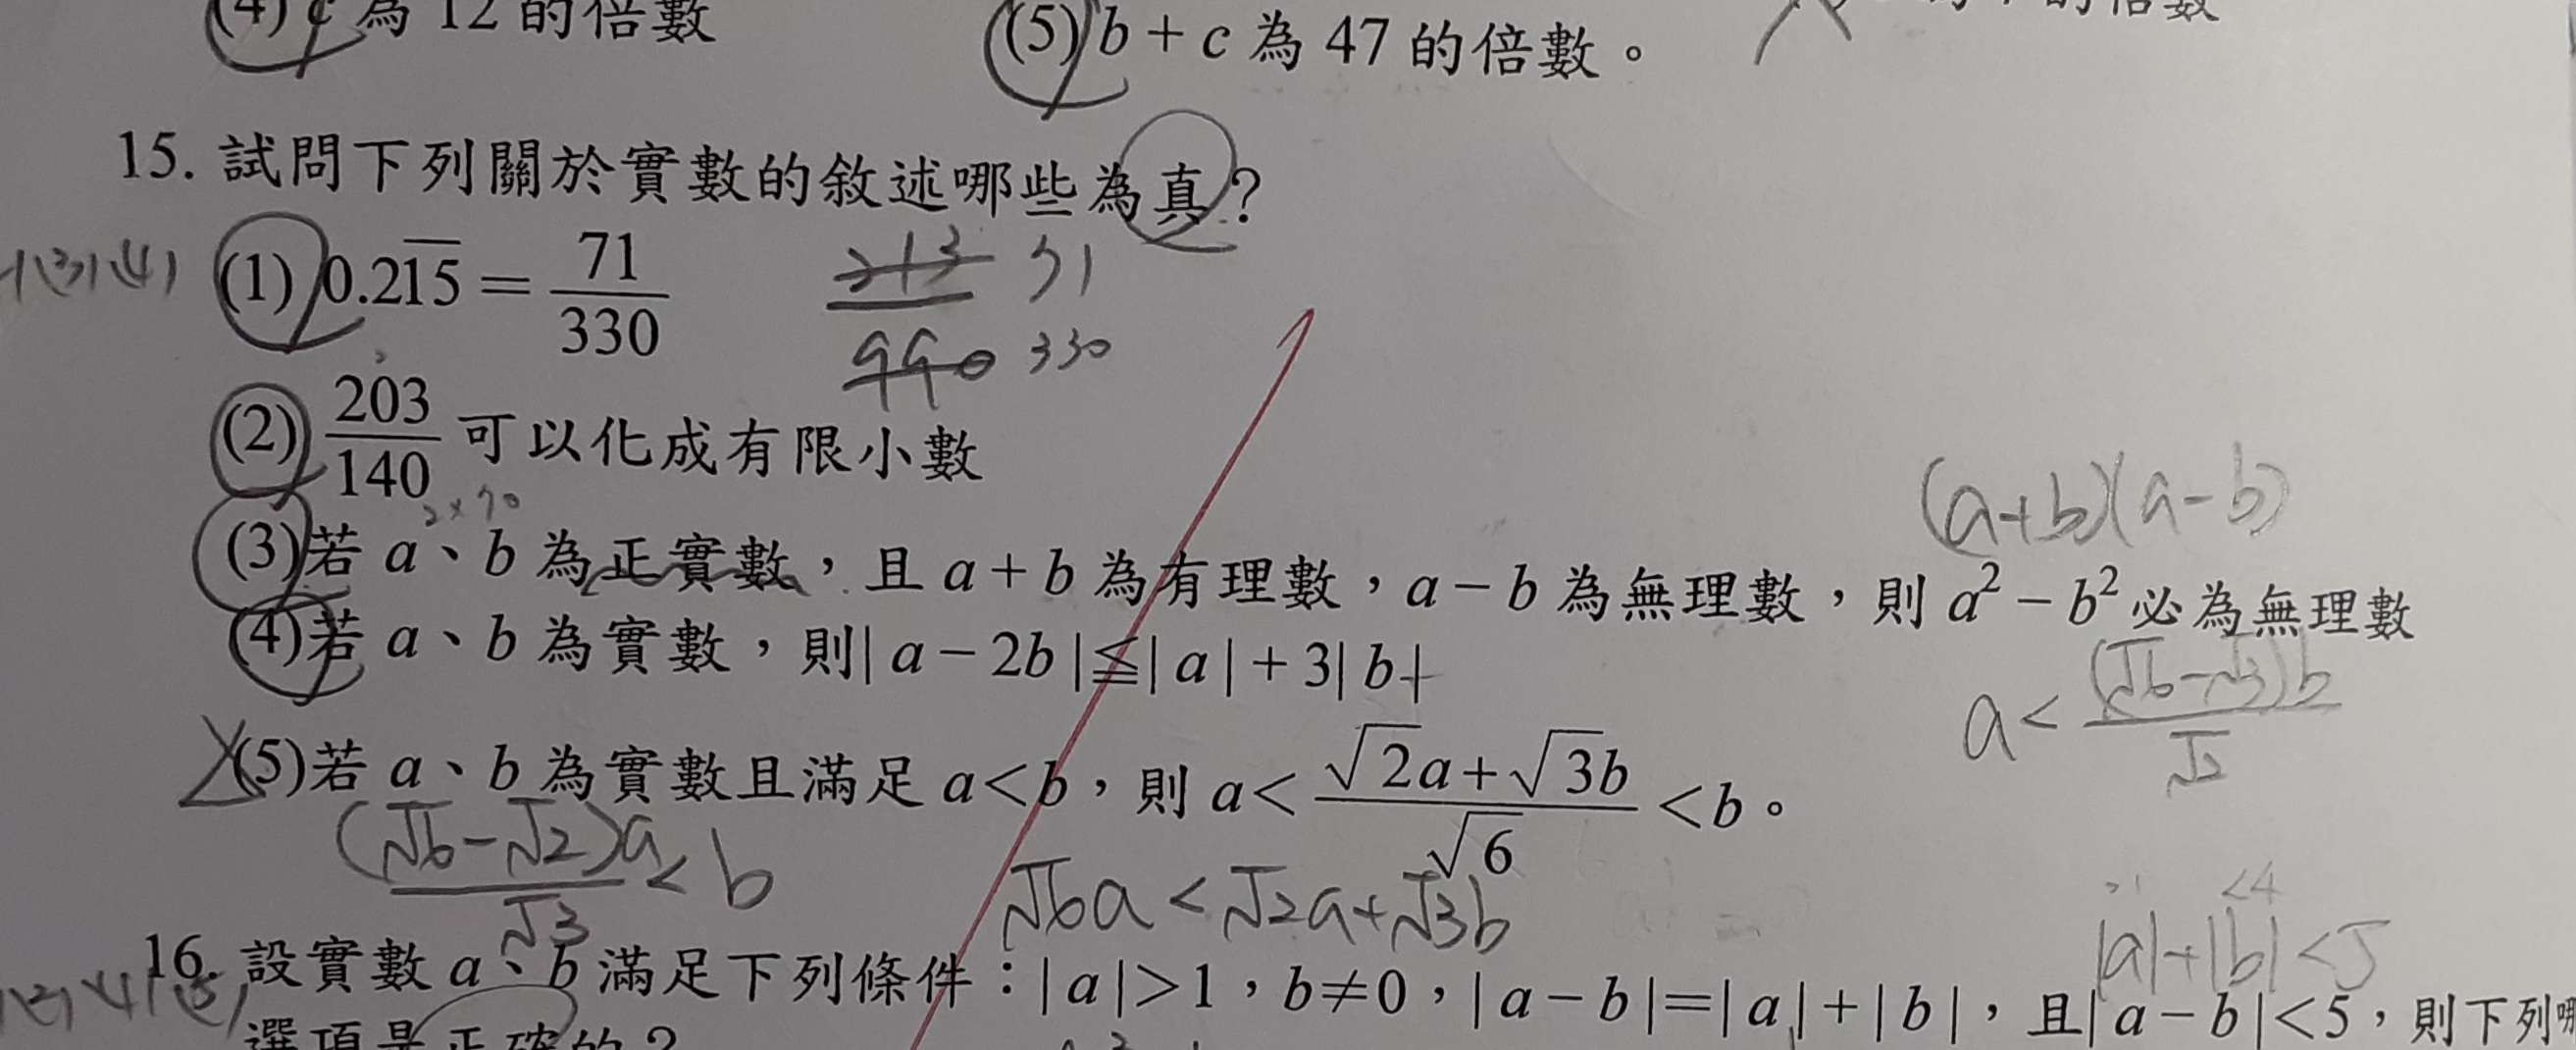 (4) c 為 12 的倍數
(5) b + c 為 47 的倍數。
的倍數
15. 試問下列關於實數的敘述哪些為真？
(3)(4) (1) 0.2\overline{15} = \frac{71}{330} \frac{213}{990} \frac{71}{330}
(2) \frac{203}{140} 可以化成有限小數
2×70
(a+b)(a-b)
(3)若 a、b 為正實數，且 a + b 為有理數，a − b 為無理數，則 a² − b² 必為無理數
(4)若 a、b 為實數，則| a − 2b |≦| a | + 3| b |
a < \frac{(√6-√3)b}{√2}
(5)若 a、b 為實數且滿足 a < b，則 a < \frac{√2a + √3b}{√6} < b。
\frac{(√6-√2)a}{√3} < b
√6a < √2a+√3b
>1 <4
|a|+|b|<5
16. 設實數 a、b 滿足下列條件：| a | > 1，b ≠ 0，| a − b | = | a | + | b |，且| a − b | < 5，則下列哪
選項是正確的？